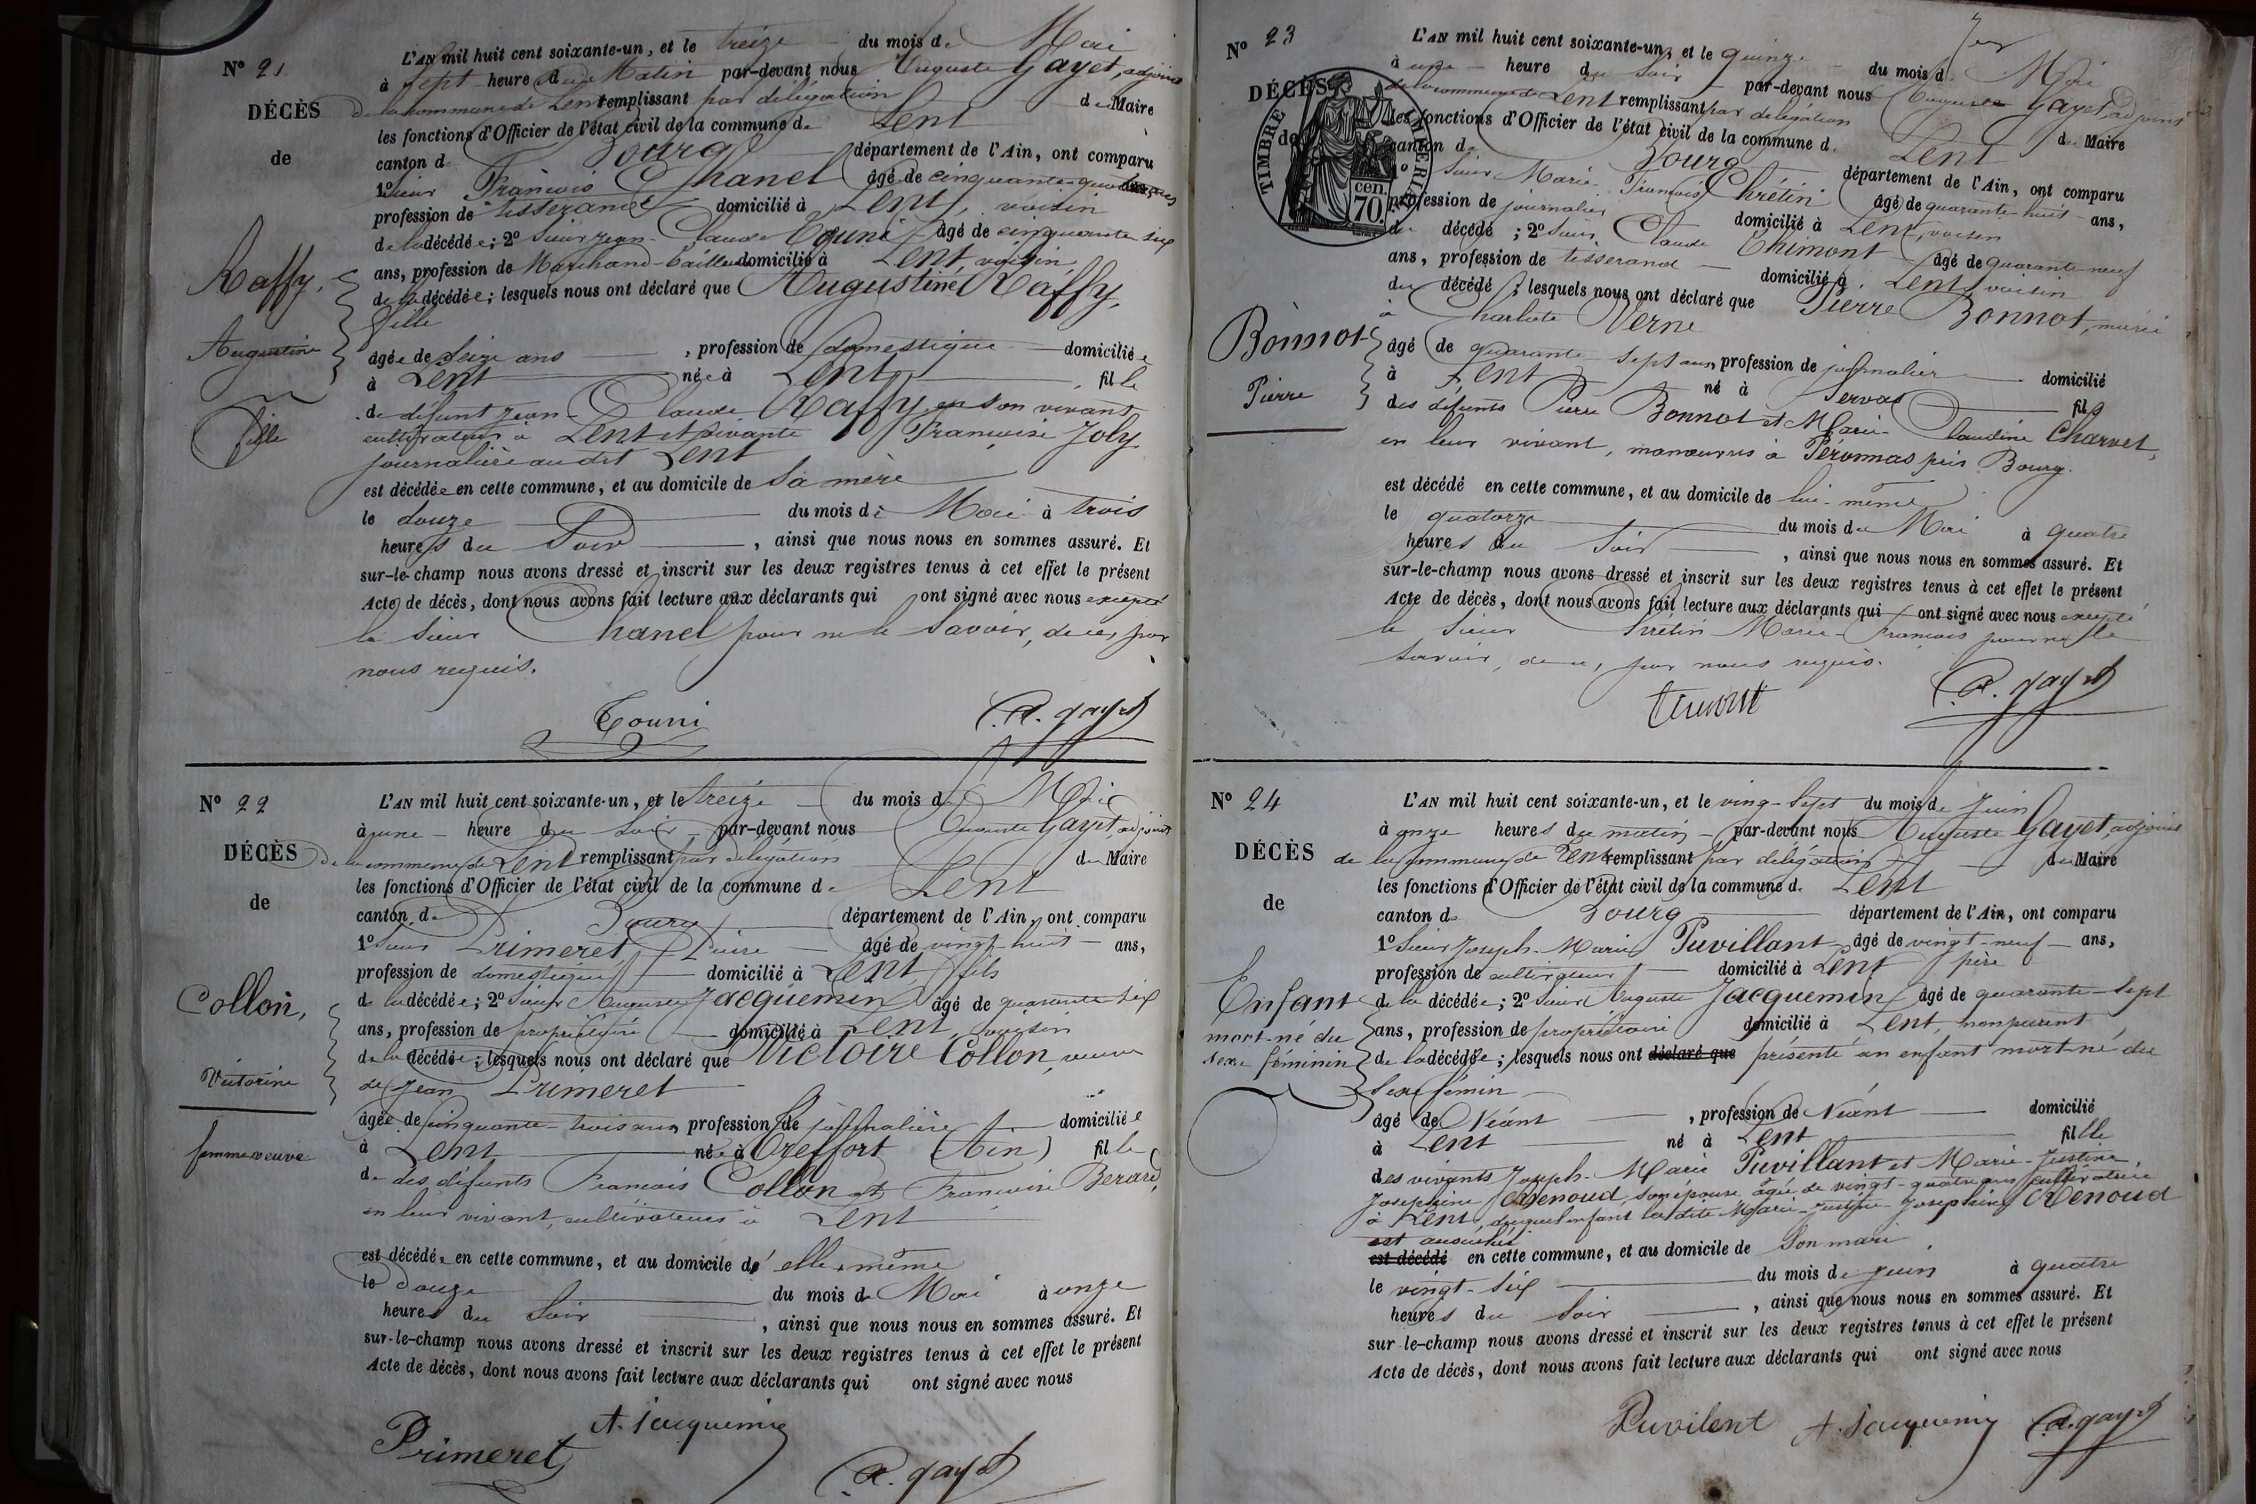 N° 21
DÉCÈS
de
Raffy,
Augustine
fille
L'AN mil huit cent soixante-un, et le treize du mois de Mai
à sept heure du Matin par-devant nous Auguste Gayet, adjoint
de la commune de Lent remplissant par délégation du Maire
les fonctions d'Officier de l'état civil de la commune de Lent
canton de Bourg département de l'Ain, ont comparu
1° sieur François Chanel âgé de cinquante-quatre ans
profession de tisserand domicilié à Lent, voisin
de la décédée; 2° sieur Jean-Claude Touni âgé de cinquante six
ans, profession de Marchand-tailleur domicilié à Lent, voisin
de la décédée; lesquels nous ont déclaré que Augustine Raffy,
fille
âgée de seize ans, profession de domestique domiciliée
à Lent née à Lent fille
de défunt Jean-Claude Raffy en son vivant
cultivateur à Lent et vivante Françoise Joly
journalière au dit Lent
est décédée en cette commune, et au domicile de sa mère
le douze du mois de Mai à trois
heures du Soir, ainsi que nous nous en sommes assuré. Et
sur-le-champ nous avons dressé et inscrit sur les deux registres tenus à cet effet le présent
Acte de décès, dont nous avons fait lecture aux déclarants qui ont signé avec nous excepté
le sieur Chanel pour ne le savoir, de ce, par
nous requis.
Touni A. gayet
N° 22
DÉCÈS
de
Collon,
Victorine
femme veuve
L'AN mil huit cent soixante-un, et le treize du mois de Mai
à une heure du soir par-devant nous Auguste Gayet adjoint
de la commune de Lent remplissant par délégation du Maire
les fonctions d'Officier de l'état civil de la commune de Lent
canton de Bourg département de l'Ain, ont comparu
1° sieur Primeret Pierre âgé de vingt-huit ans,
profession de domestique domicilié à Lent, fils
de la décédée; 2° sieur Auguste Jacquemin âgé de quarante six
ans, profession de propriétaire domicilié à Lent, voisin
de la décédée; lesquels nous ont déclaré que Victoire Collon, veuve
de Jean Primeret
âgée de cinquante-trois ans, profession de journalière domiciliée
à Lent née à Treffort (Ain) fille
de des défunts François Collon et Françoise Berard,
en leur vivant, cultivateurs à Lent
est décédée en cette commune, et au domicile d'elle-même
le douze du mois de Mai à onze
heures du soir, ainsi que nous nous en sommes assuré. Et
sur-le-champ nous avons dressé et inscrit sur les deux registres tenus à cet effet le présent
Acte de décès, dont nous avons fait lecture aux déclarants qui ont signé avec nous
Primeret A. Jacquemin
A. gayet
N° 23
DÉCÈS
de
TIMBRE IMPÉRIAL
70 cen.
Bonnot
Pierre
L'AN mil huit cent soixante-un, et le quinze du mois de Mai
à une heure du soir par-devant nous Auguste Gayet, adjoint
de la commune de Lent remplissant par délégation du Maire
les fonctions d'Officier de l'état civil de la commune de Lent
canton de Bourg département de l'Ain, ont comparu
1° sieur Marie-François Chrétin âgé de quarante-huit ans,
profession de journalier domicilié à Lent, voisin
du décédé; 2° sieur Claude Thimont âgé de quarante-neuf
ans, profession de tisserand domicilié à Lent, voisin
du décédé; lesquels nous ont déclaré que Pierre Bonnot, marié
à Charlotte Verne
âgé de quarante-sept ans, profession de journalier domicilié
à Lent né à Servas fils
des défunts Pierre Bonnot et Marie-Claudine Charvet,
en leur vivant, manœuvres à Péronnas près Bourg.
est décédé en cette commune, et au domicile de lui-même
le quatorze du mois de Mai à quatre
heures du soir, ainsi que nous nous en sommes assuré. Et
sur-le-champ nous avons dressé et inscrit sur les deux registres tenus à cet effet le présent
Acte de décès, dont nous avons fait lecture aux déclarants qui ont signé avec nous excepté
le sieur Chrétin Marie-François pour ne le
savoir, de ce, par nous requis.
A. gayet
N° 24
DÉCÈS
de
Enfant
mort-né du
sexe féminin
L'AN mil huit cent soixante-un, et le ving-sept du mois de Juin
à onze heures du matin par-devant nous Auguste Gayet, adjoint
de la commune de Lent remplissant par délégation du Maire
les fonctions d'Officier de l'état civil de la commune de Lent
canton de Bourg département de l'Ain, ont comparu
1° sieur Joseph-Marie Puvillant âgé de vingt-neuf ans,
profession de cultivateur domicilié à Lent père
de la décédée; 2° sieur Auguste Jacquemin âgé de quarante-sept
ans, profession de propriétaire domicilié à Lent, non parent
de la décédée; lesquels nous ont déclaré que présenté un enfant mort-né du
sexe fémin
âgé de Néant, profession de Néant domicilié
à Lent né à Lent fille
des vivants Joseph-Marie Puvillant et Marie-Justine
Josephine Renoud son épouse âgée de vingt-quatre ans cultivatrice
à Lent, duquel enfant la dite Marie-Justine-Josephine Renoud
est accouchée
est décédé en cette commune, et au domicile de son mari
le vingt-six du mois de juin à quatre
heures du soir, ainsi que nous nous en sommes assuré. Et
sur-le-champ nous avons dressé et inscrit sur les deux registres tenus à cet effet le présent
Acte de décès, dont nous avons fait lecture aux déclarants qui ont signé avec nous
Puvilent A. Jacquemin A. gayet